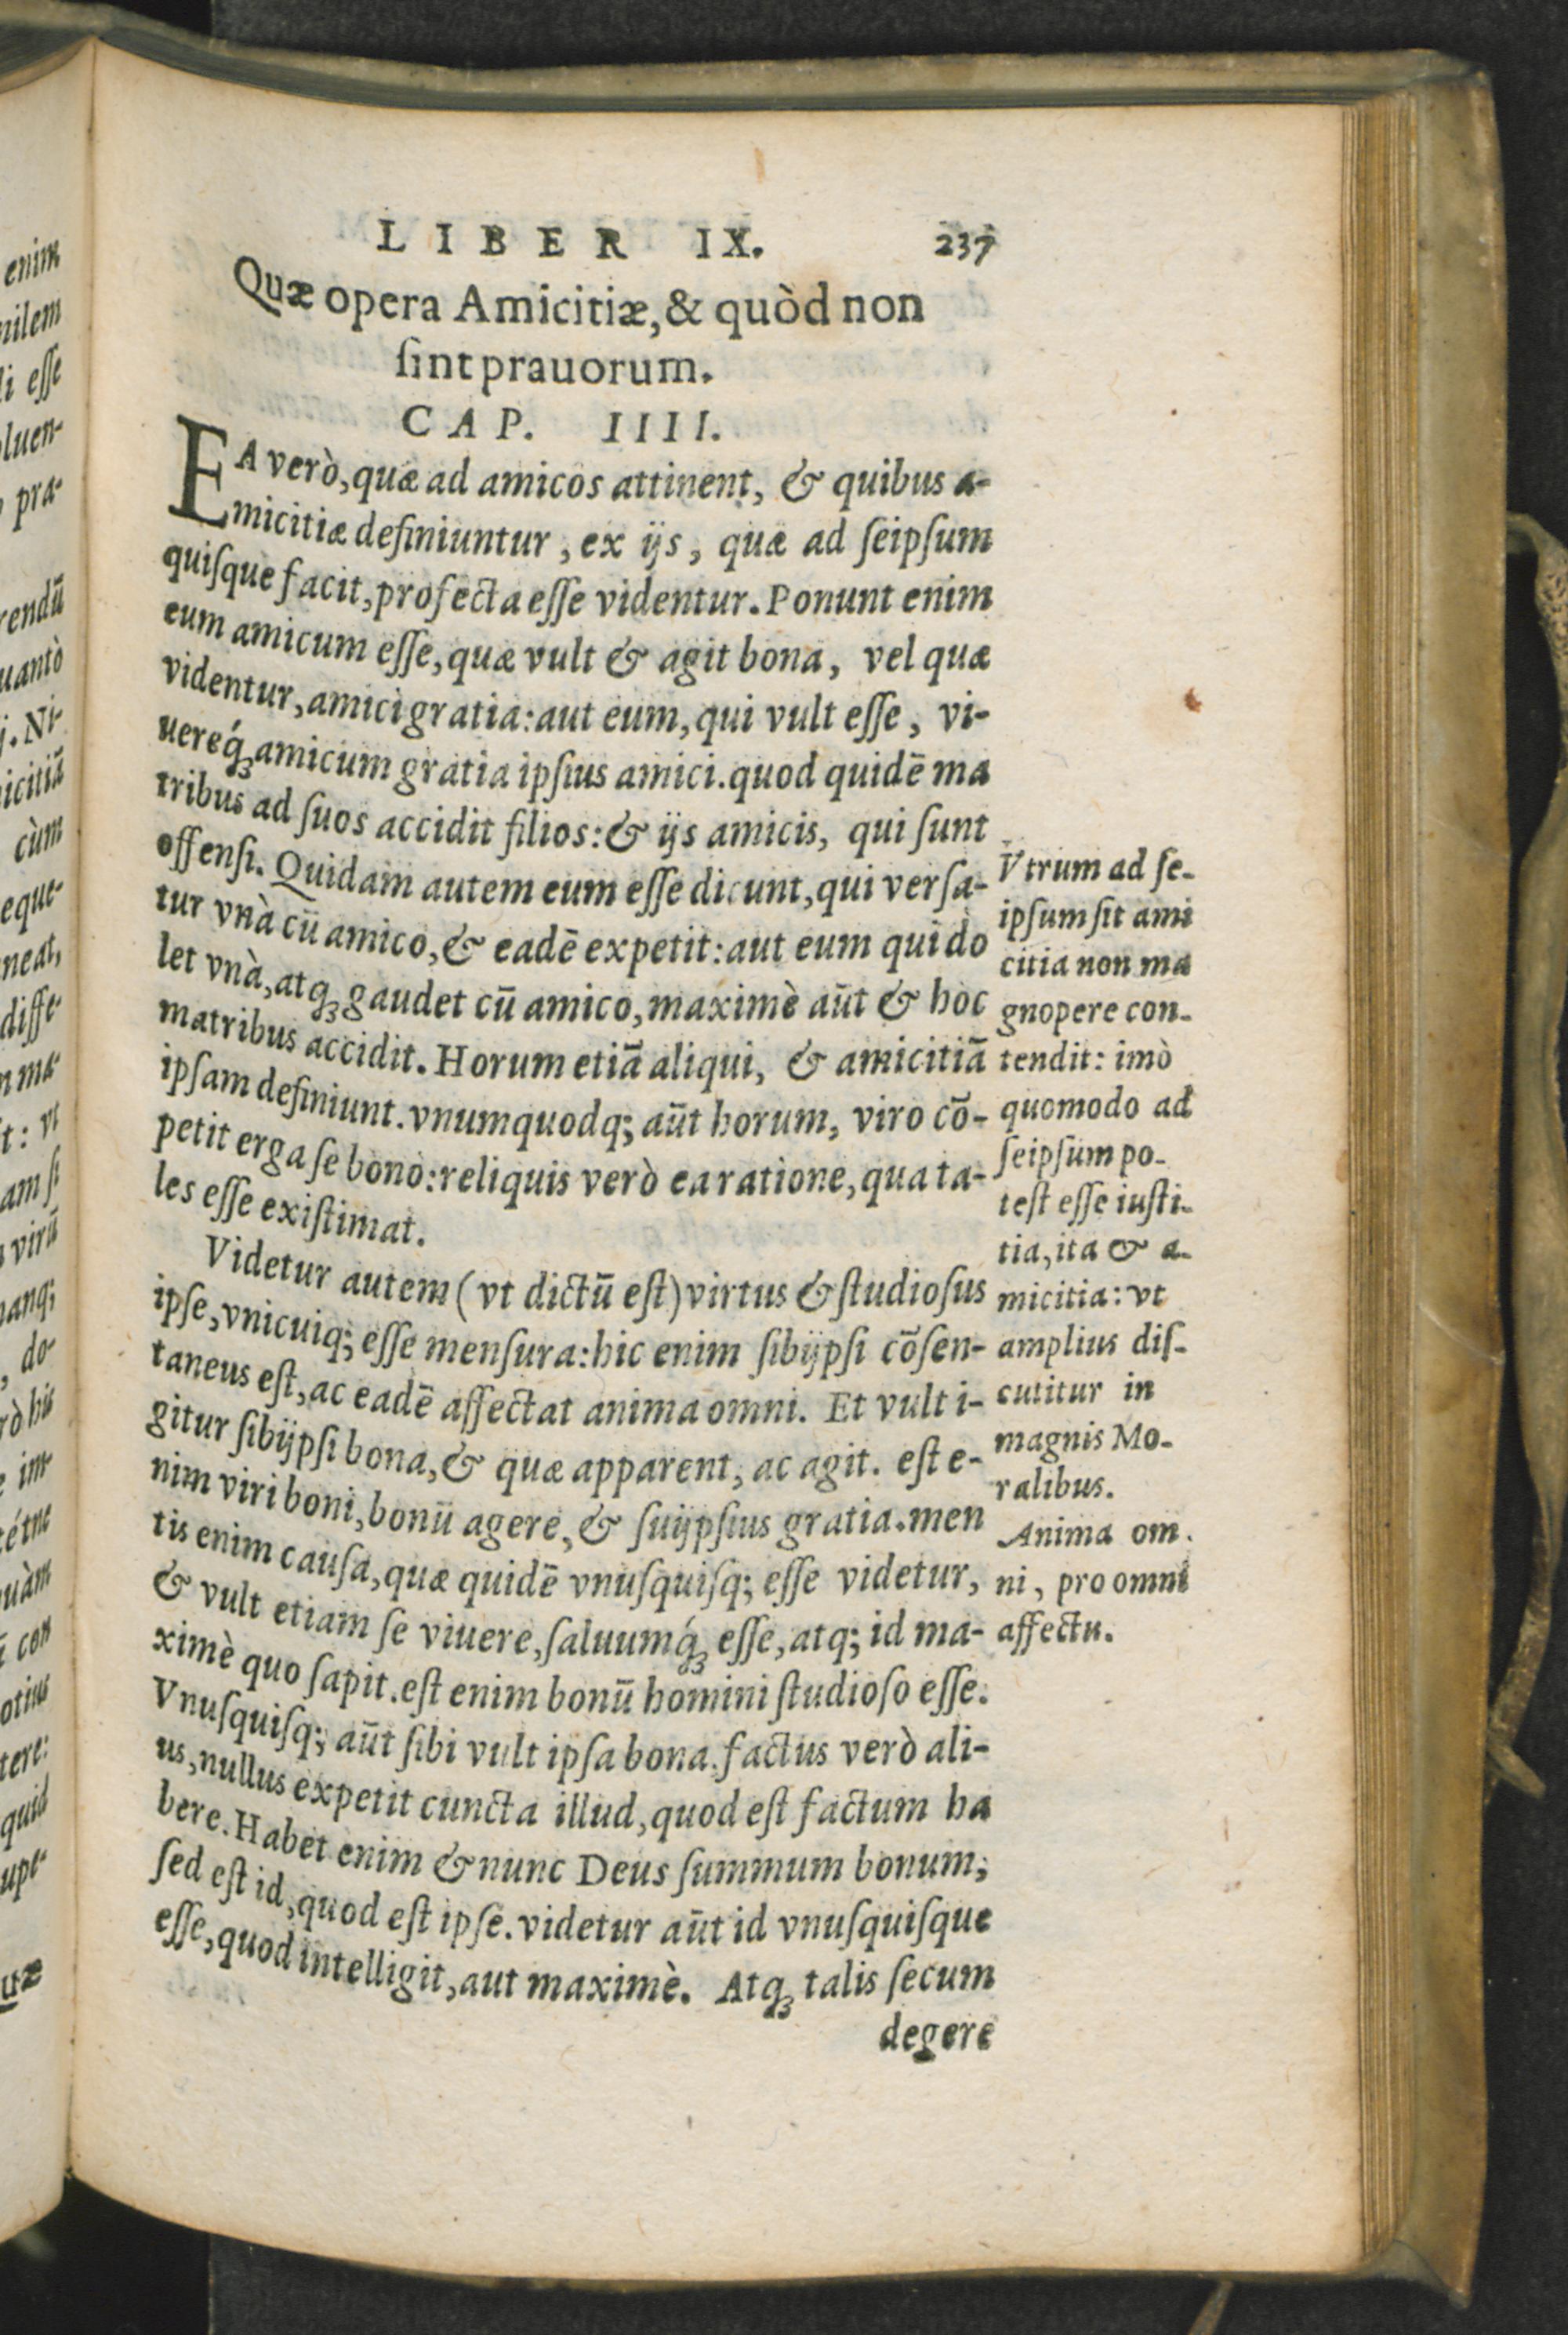 LIBER IX. 237
Quæ opera Amicitiæ, & quòd non
ſint prauorum.
CAP. IIII.
EA verò, quæ ad amicos attinent, & quibus a-
micitiæ definiuntur, ex ijs, quæ ad ſeipſum
quiſque facit, profecta eſſe videntur. Ponunt enim
eum amicum eſſe, quæ vult & agit bona, vel quæ
videntur, amici gratia: aut eum, qui vult eſſe, vi-
uereq́ꝫ amicum gratia ipſius amici. quod quidē ma
tribus ad ſuos accidit filios: & ijs amicis, qui ſunt
offenſi. Quidam autem eum eſſe dicunt, qui verſa-
tur vnà cū amico, & eadē expetit: aut eum qui do
let vnà, atqꝫ gaudet cū amico, maximè aūt & hoc
matribus accidit. Horum etiā aliqui, & amicitiā
ipſam definiunt. vnumquodq; aūt horum, viro cō-
petit erga ſe bono: reliquis verò ea ratione, qua ta-
les eſſe exiſtimat.
Videtur autem (vt dictū eſt) virtus & ſtudioſus
ipſe, vnicuiq; eſſe menſura: hic enim ſibijpſi cōſen-
taneus eſt, ac eadē affectat anima omni. Et vult i-
gitur ſibijpſi bona, & quæ apparent, ac agit. eſt e-
nim viri boni, bonū agere, & ſuijpſius gratia. men
tis enim cauſa, quæ quidē vnuſquiſq; eſſe videtur,
& vult etiam ſe viuere, ſaluumq́ꝫ eſſe, atq; id ma-
ximè quo ſapit. eſt enim bonū homini ſtudioſo eſſe.
Vnuſquiſq; aūt ſibi vult ipſa bona. factus verò ali-
us, nullus expetit cuncta illud, quod eſt factum ha
bere. Habet enim & nunc Deus ſummum bonum;
ſed eſt id, quod eſt ipſe. videtur aūt id vnuſquiſque
eſſe, quod intelligit, aut maximè. Atqꝫ talis ſecum
degere
Vtrum ad ſe-
ipſum ſit ami
citia non ma
gnopere con-
tendit: imò
quomodo ad
ſeipſum po-
teſt eſſe iuſti-
tia, ita & a-
micitia: vt
amplius diſ-
cutitur in
magnis Mo-
ralibus.
Anima om-
ni, pro omni
affectu.